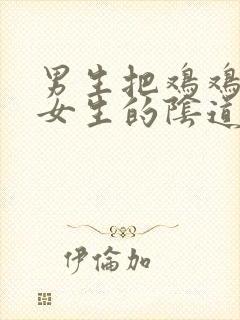 男生把鸡鸡
女生的陰道
伊倫加